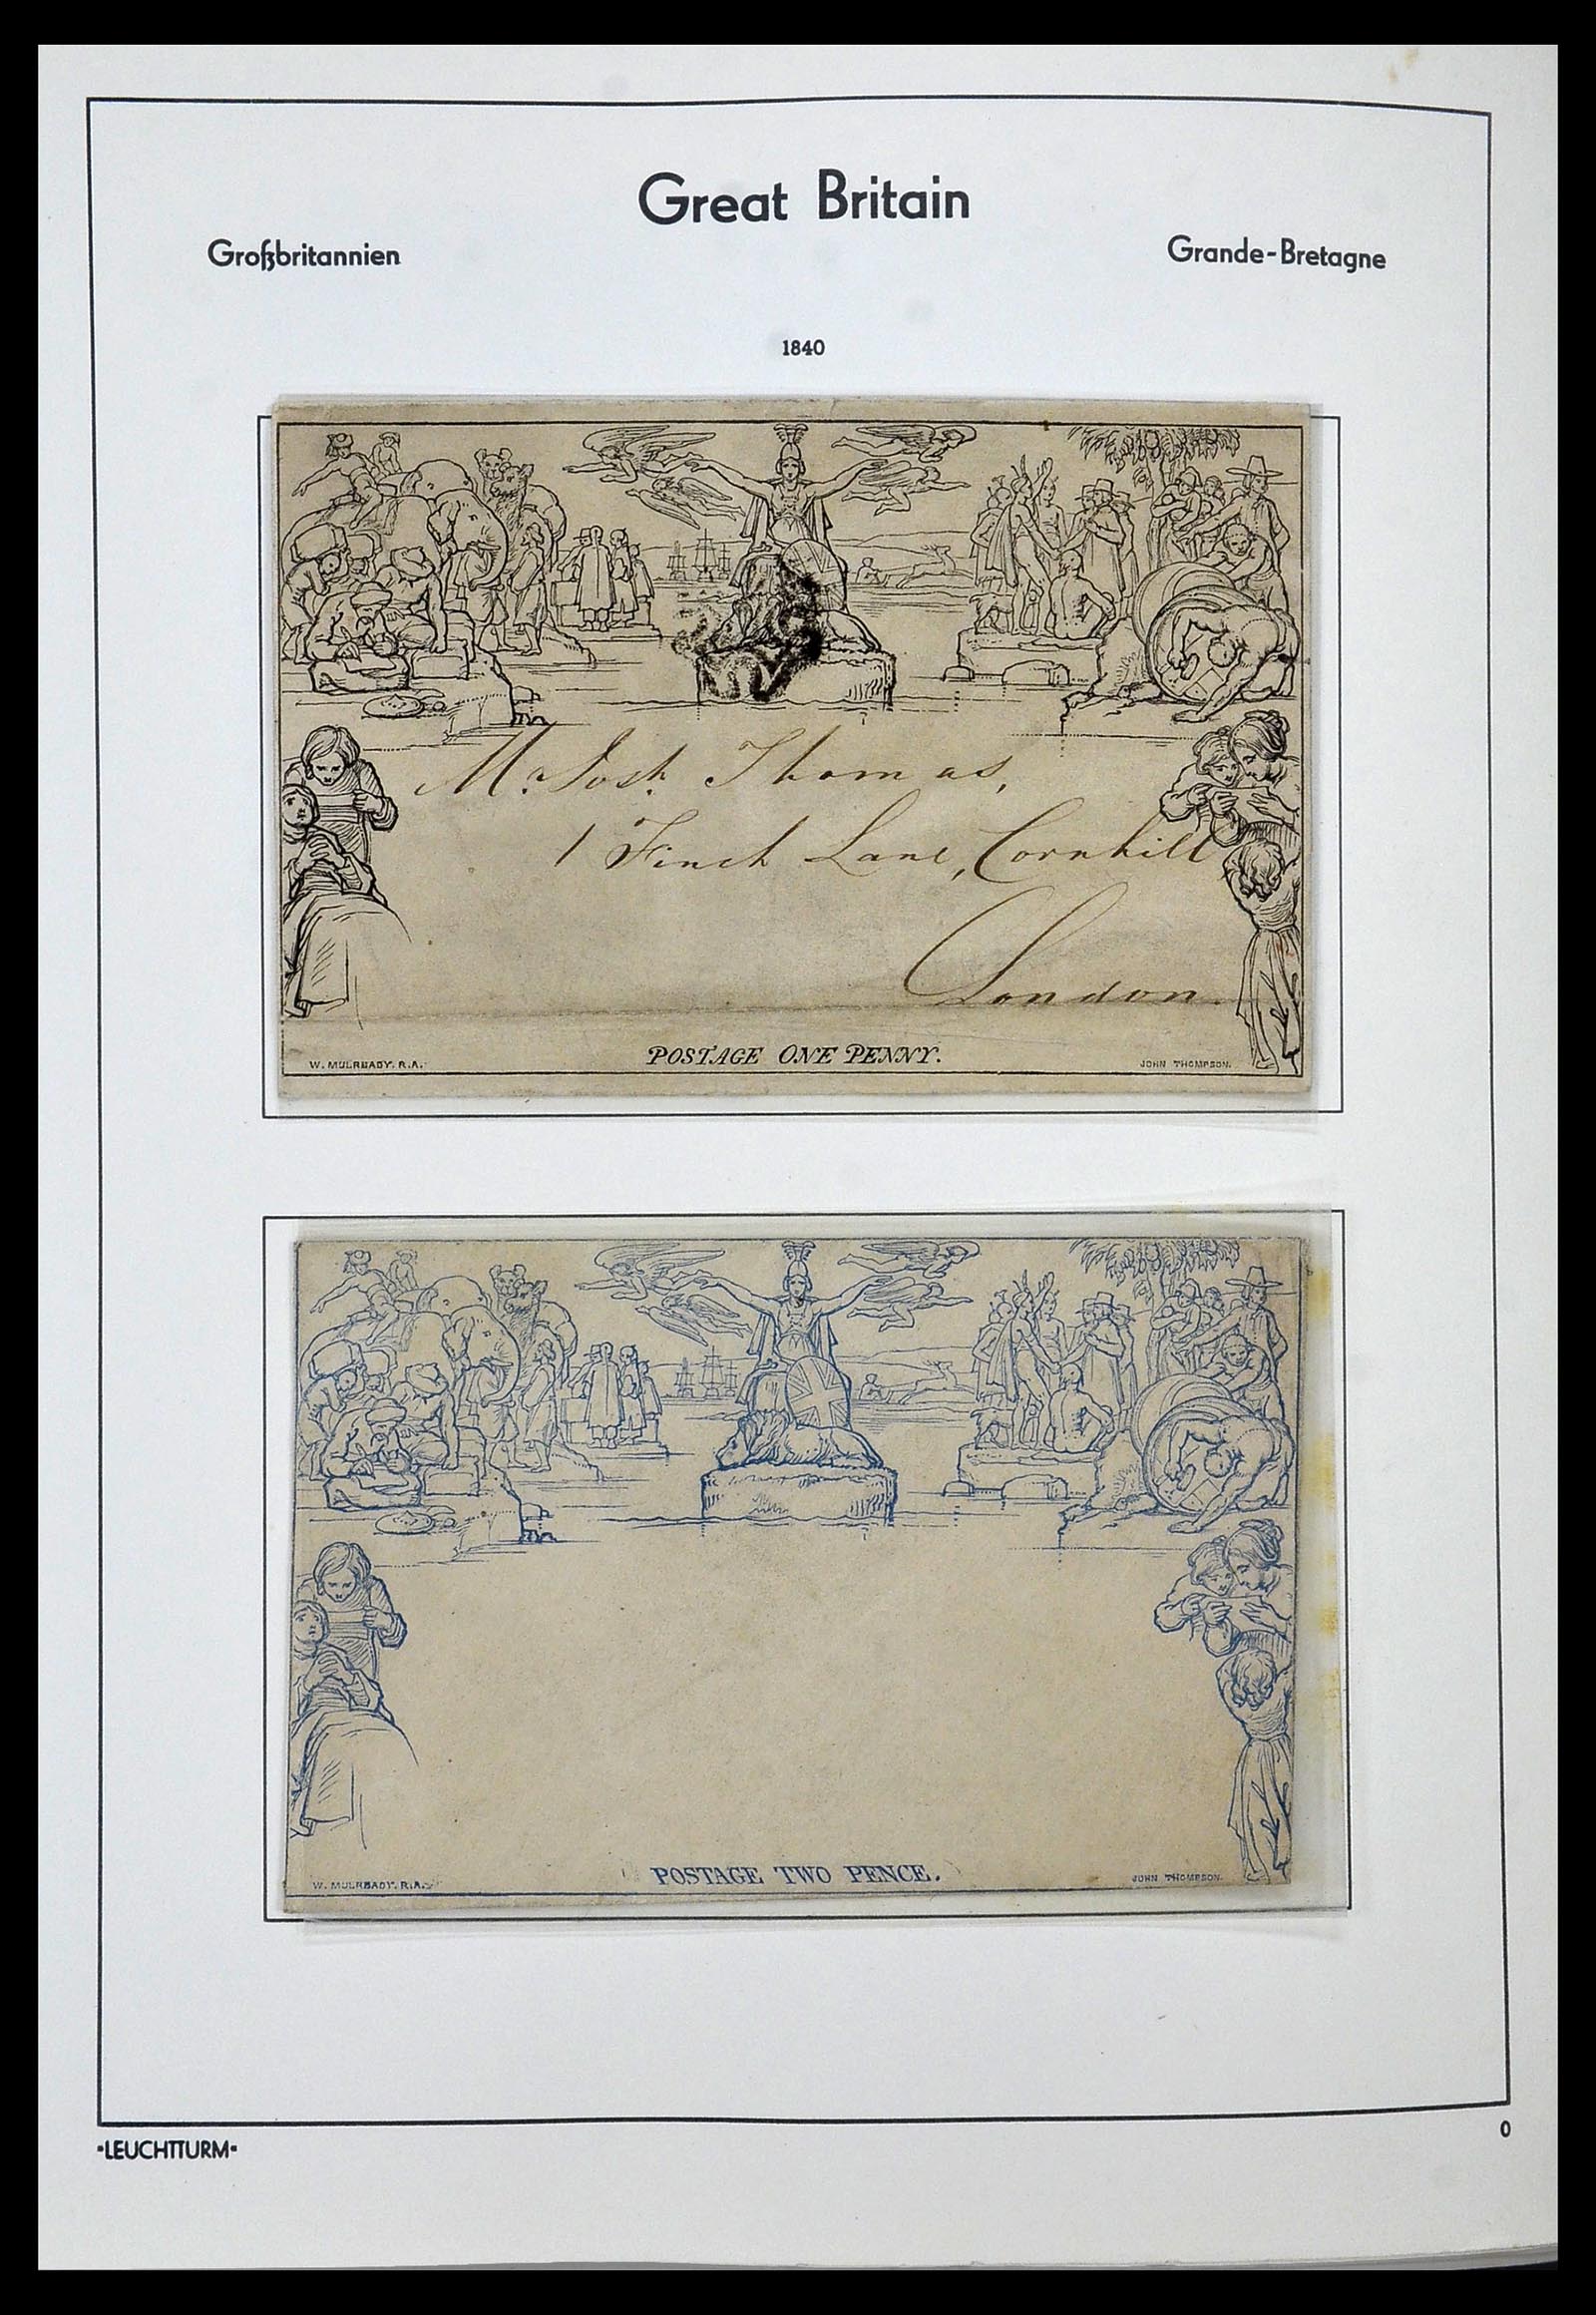 Great Britain
Großbritannien
Grande-Bretagne
1840
Mr. Josh. Thomas,
1 Finch Lane, Cornhill
London.
POSTAGE ONE PENNY.
W. MULREADY. R.A.
JOHN THOMPSON.
POSTAGE TWO PENCE.
W. MULREADY. R.A.
JOHN THOMPSON.
•LEUCHTTURM•
0